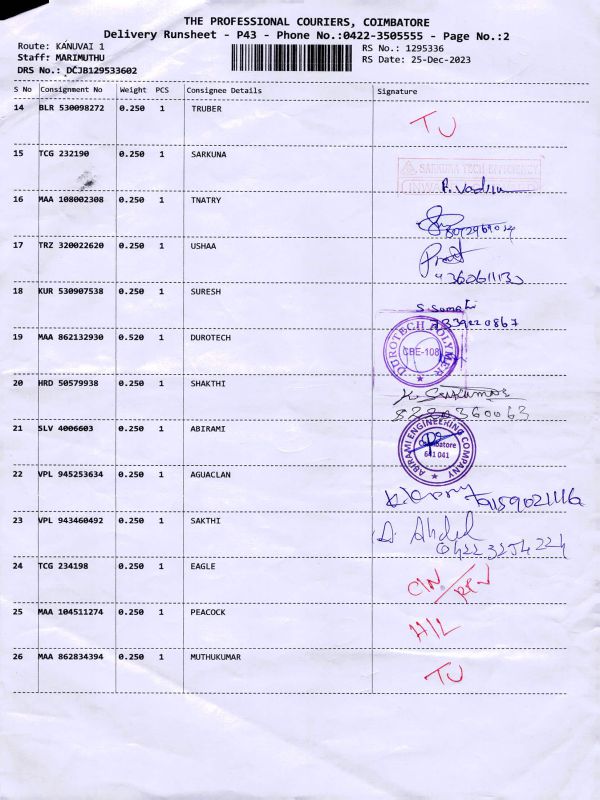 THE PROFESSIONAL COURIERS, COIMBATORE
Delivery Runsheet - P43 - Phone No.:0422-3505555 - Page No.:2
Route: KANUVAI 1 RS No.: 1295336
Staff: MARIMUTHU RS Date: 25-Dec-2023
DRS No.: DCJB129533602
S No Consignment No Weight PCS Consignee Details Signature
14 BLR 530098272 0.250 1 TRUBER TU
15 TCG 232190 0.250 1 SARKUNA
SARKUNA TECH EFFICIENCY
16 MAA 108002308 0.250 1 TNATRY
17 TRZ 320022620 0.250 1 USHAA
18 KUR 530907538 0.250 1 SURESH
7339220867
19 MAA 862132930 0.520 1 DUROTECH
DUROTECH POLYMER
CBE-108
20 HRD 50579938 0.250 1 SHAKTHI
21 SLV 4006603 0.250 1 ABIRAMI
ABIRAMI ENGINEERING COMPANY
Coimbatore
641 041
22 VPL 945253634 0.250 1 AGUACLAN
23 VPL 943460492 0.250 1 SAKTHI
24 TCG 234198 0.250 1 EAGLE
25 MAA 104511274 0.250 1 PEACOCK H/L
26 MAA 862834394 0.250 1 MUTHUKUMAR TU